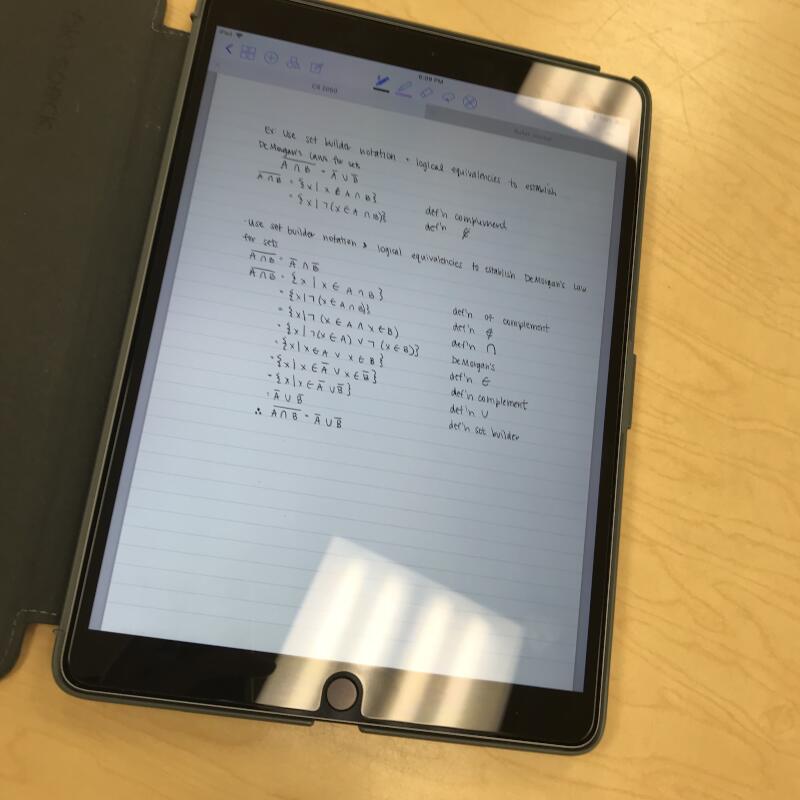 iPad
6:09 PM
CS 2050
Ex: Use set builder notation + logical equivalencies to establish
DeMorgan's Laws for sets
A̅ ̅∩̅ ̅B̅ = A̅ ∪ B̅
A̅ ̅∩̅ ̅B̅ = {x | x ∉ A ∩ B} def'n complement
= {x | ¬(x ∈ A ∩ B)} def'n ∉
· Use set builder notation & logical equivalencies to establish DeMorgan's Law
for sets
A̅ ̅∩̅ ̅B̅ = A̅ ∩ B̅
A̅ ̅∩̅ ̅B̅ = {x | x ∈ A ∩ B} def'n of complement
= {x | ¬(x ∈ A ∩ B)} def'n ∉
= {x | ¬(x ∈ A ∧ x ∈ B) def'n ∩
= {x | ¬(x ∈ A) ∨ ¬(x ∈ B)} DeMorgan's
= {x | x ∈ A ∨ x ∈ B} def'n ∈
= {x | x ∈ A̅ ∨ x ∈ B̅} def'n complement
= {x | x ∈ A̅ ∪ B̅} def'n ∪
= A̅ ∪ B̅ def'n set builder
∴ A̅ ̅∩̅ ̅B̅ = A̅ ∪ B̅